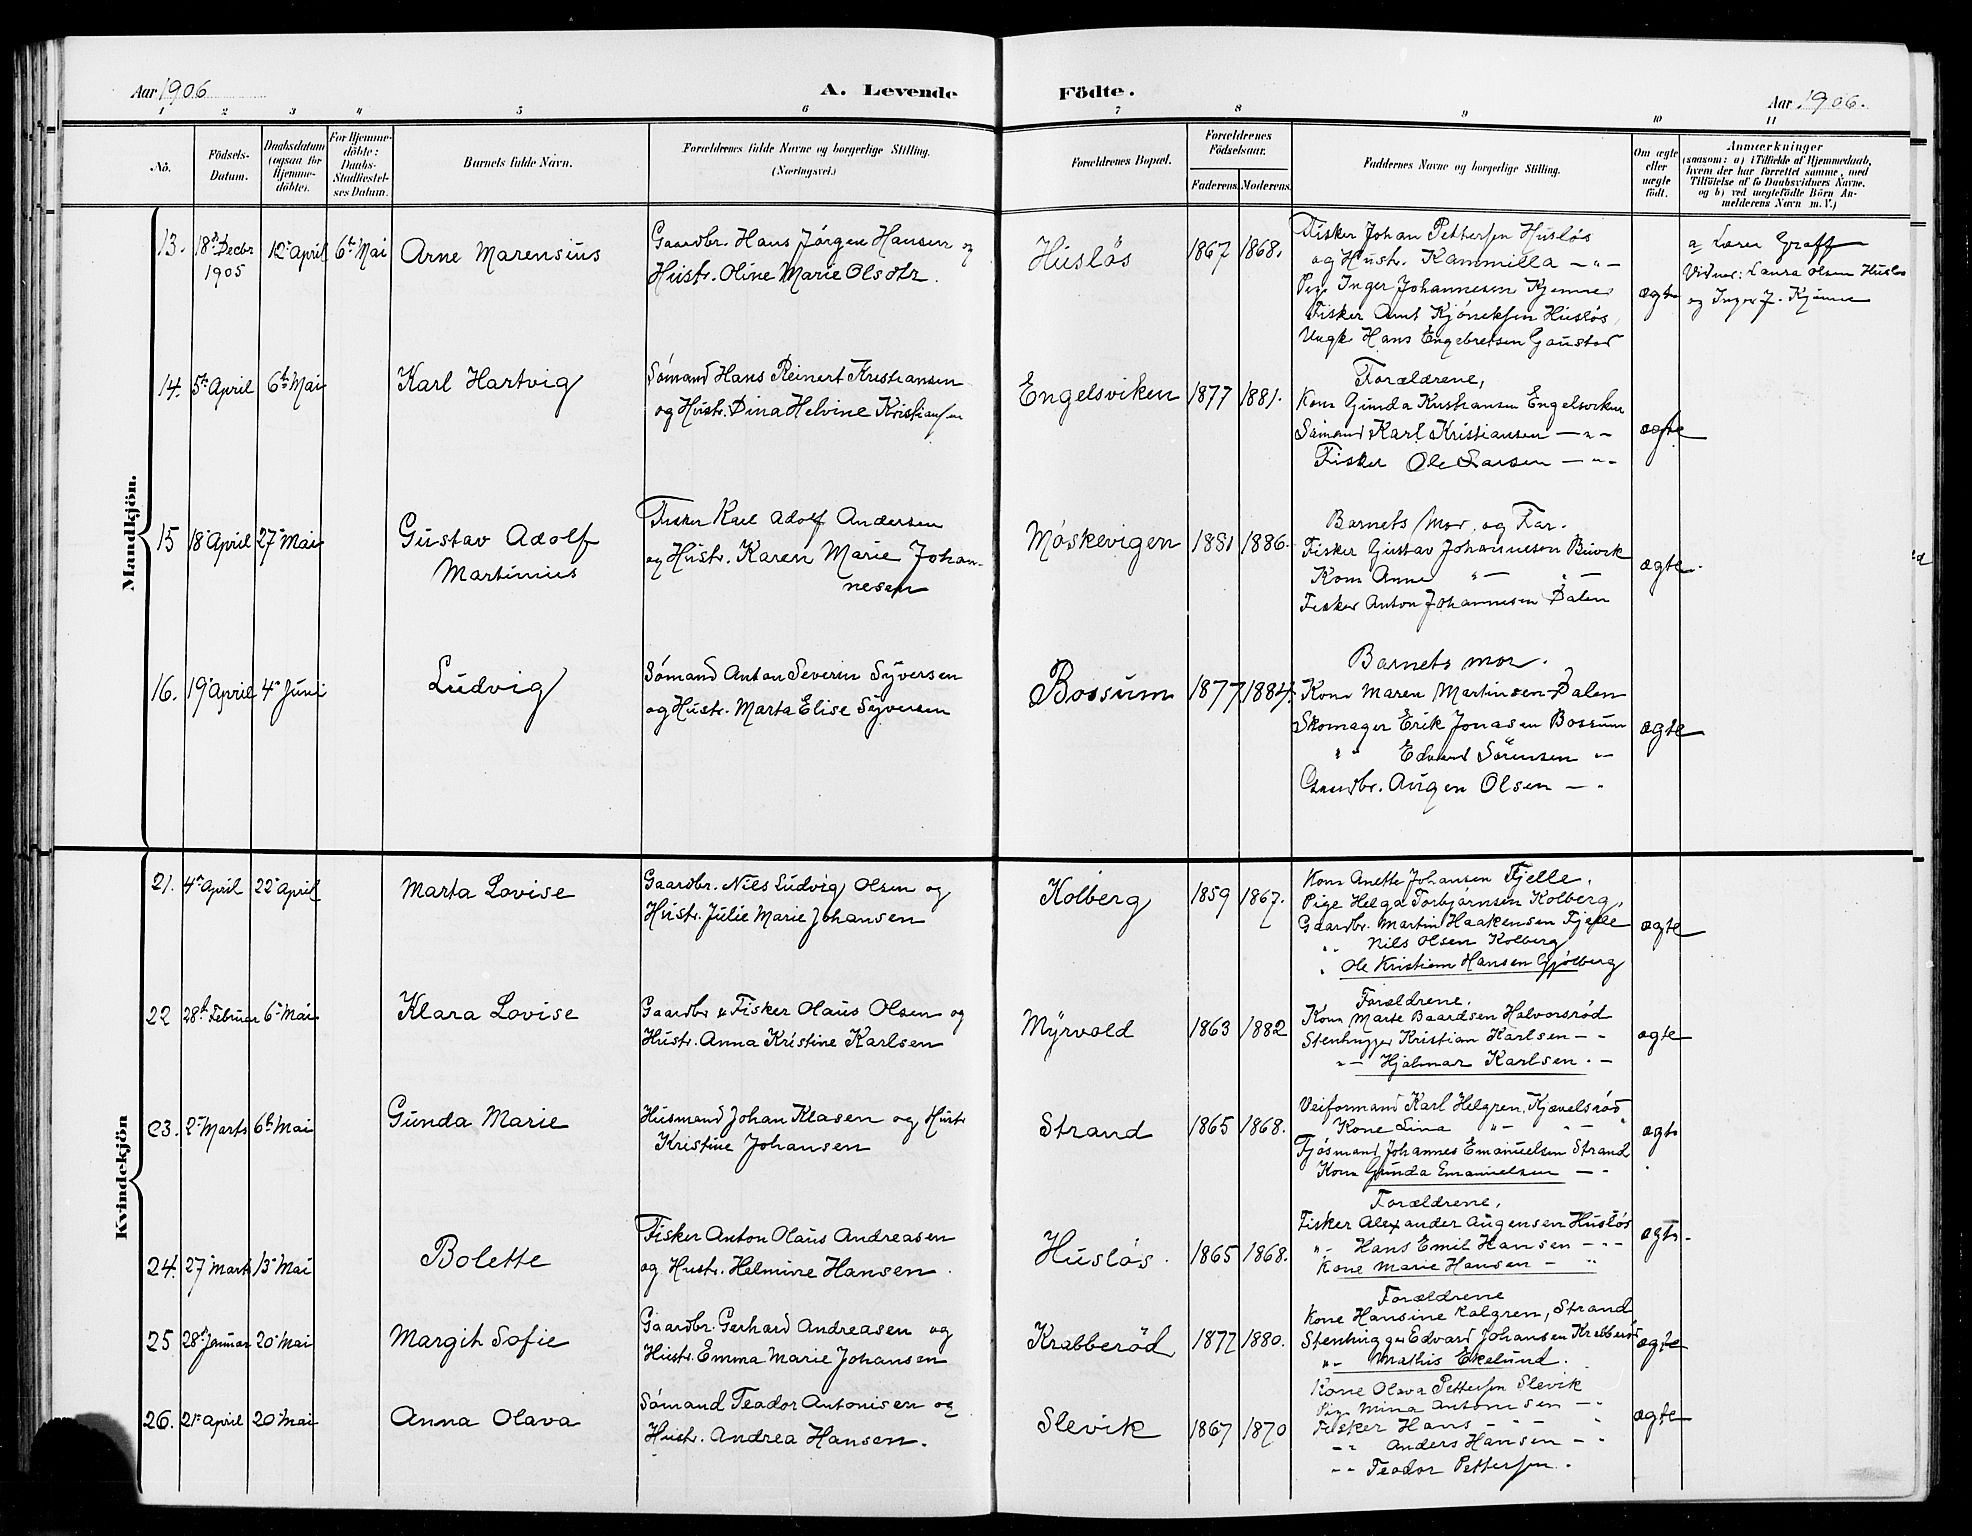 Aar 1906
A. Levende Födte.
Aar 1906.
1 2 3 4 5 6 7 8 9 10 11
No.
Födsels-Datum.
Daabsdatum (ogsaa for Hjemmedöbte).
For Hjemmedöbte: Daabs-Stadfæstelses Datum.
Barnets fulde Navn.
Forældrenes fulde Navne og borgerlige Stilling.
(Næringsvei.)
Forældrenes Bopæl.
Forældrenes Födselsaar.
Faderens. Moderens.
Faddernes Navne og borgerlige Stilling.
Om ægte eller uægte födt.
Anmærkninger
(saasom: a) i Tilfælde af Hjemmedaab,
hvem der har forrettet samme, med
Tilföielse af to Daabsvidners Navne,
og b) ved uægtefödte Börn An-
melderens Navn m. V.)
Mandkjön.
13. 18de Decbr 1905 12te April 6te Mai Arne Marensius
Gaardbr. Hans Jörgen Hansen og
Hustr. Oline Marie Olsdtr.
Huslös 1867 1868.
Fisker Johan Pettersen Huslös
og Hustr. Kammilla — " —
Pige Inger Johannesen Kjenne
Fisker Amt Huslös,
Ungk. Hans Engebretsen Gaustad
ægte
a Lærer Graff
Vidner: Laura Olsen Huslös
og Inger J. Kjönne
14. 5te April 6te Mai Karl Hartvig
Sömand Hans Reinert Kristiansen
og Hustr. Dina Helvine Kristiansen
Engelsviken 1877 1881.
Forældrene,
Kone Gunda Kristiansen Engelsviken
Sömand Karl Kristiansen — " —
Fisker Ole Larsen — " —
ægte
15 18 April 27 Mai Gustav Adolf
Martinius
Fisker Karl Adolf Andersen
og Hustr. Karen Marie Johan-
nesen
Möskevigen 1881 1886.
Barnets Mor og Far.
Fisker Gustav Johannesen Buvik
Kone Anne " — " —
Fisker Anton Johannesen Dalen
ægte.
16. 19 April 4 Juni Ludvig
Sömand Anton Severin Syversen
og Hustr. Marta Elise Syversen
Bossum 1877 1884.
Barnets mor.
Kone Maren Martinsen Dalen
Skomager Erik Jonasen Bossum
" " Edvard Sörensen " —
Gaardbr. Augen Olsen — "
ægte
Kvindekjön
21. 4de April 22 April Marta Lovise
Gaardbr. Nils Ludvig Olsen og
Hustr. Julie Marie Johansen
Kolberg 1859 1867.
Kone Anette Johansen Fjelle,
Pige Helga Torbjörnsen Kolberg,
Gaardbr. Martin Haakensen Fjelle
" Nils Olsen Kolberg
" Ole Kristian Hansen Gjölberg
ægte
22 28de Februar 6 Mai Klara Lovise
Gaardbr & Fisker Olaus Olsen og
Hustr. Anna Kristine Karlsen
Myrvold 1863 1882
Forældrene,
Kone Marte Baardsen Halvorsröd
Stenhugger Kristian Karlsen — "
" — Hjalmar Karlsen " —
ægte
23. 2 Marts 6te Mai Gunda Marie
Husmand Johan Klasen og Hustr
Kristine Johansen
Strand 1865 1868.
Veiformand Karl Helgren, Kjævelsröd
Kone Lina " — " —
Fjösmand Johannes Emanuelsen Strand
Kone Gunda Emanuelsen — "
ægte
24. 27 Marts 13 Mai Bolette
Fisker Anton Olaus Andreasen
og Hustr. Helmine Hansen.
Huslös. 1865 1868.
Forældrene,
Fisker Alexander Augensen Huslös
" — Hans Emil Hansen — " —
Kone Marie Hansen — "
ægte.
25 28de Januar 20 Mai Margit Sofie
Gaardbr. Gerhard Andreasen og
Hustr. Emma Marie Johansen
Krabberöd 1877 1880.
Forældrene
Kone Hansine Kalgren, Strand
Stenhugger Edvard Johansen Krabberöd
" — Mathis Ekelund.
ægte
26. 21 April 20 Mai Anna Olava
Sömand Teodor Antonisen og
Hustr. Andrea Hansen.
Slevik 1867 1870
Kone Olava Pettersen Slevik
Pige Mina Antonisen — "
Fisker Hans — " — "
" " Anders Hansen — "
" " Teodor Pettersen.
ægte